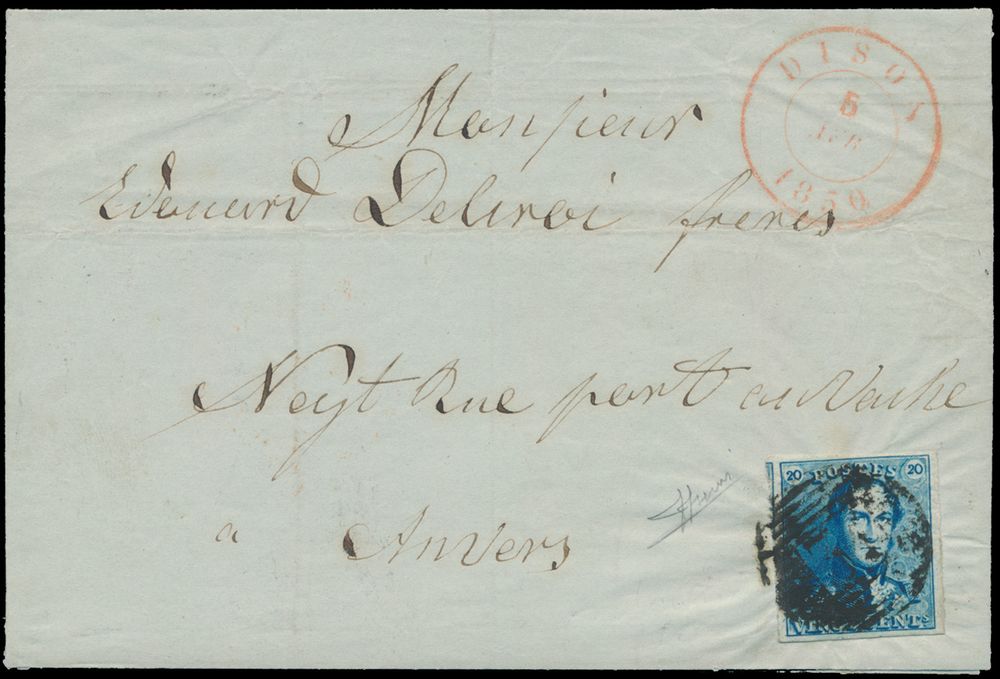 DISON
5
1850
Monsieur
Edouard Delwroi freres
Neyt Rue port au Vache
a Anvers
20 POSTES 20
VINGT CENTS